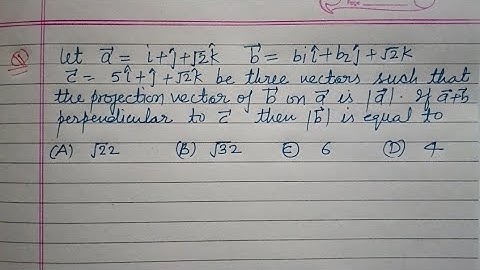 Page
(11) let a⃗ = i+ĵ+√2k̂ b⃗ = b₁î+b₂ĵ+√2k
c⃗ = 5î+ĵ+√2k̂ be three vectors such that
the projection vector of b⃗ on a⃗ is |a⃗|. If a⃗+b⃗
perpendicular to c⃗ then |b⃗| is equal to
(A) √22 (B) √32 (C) 6 (D) 4